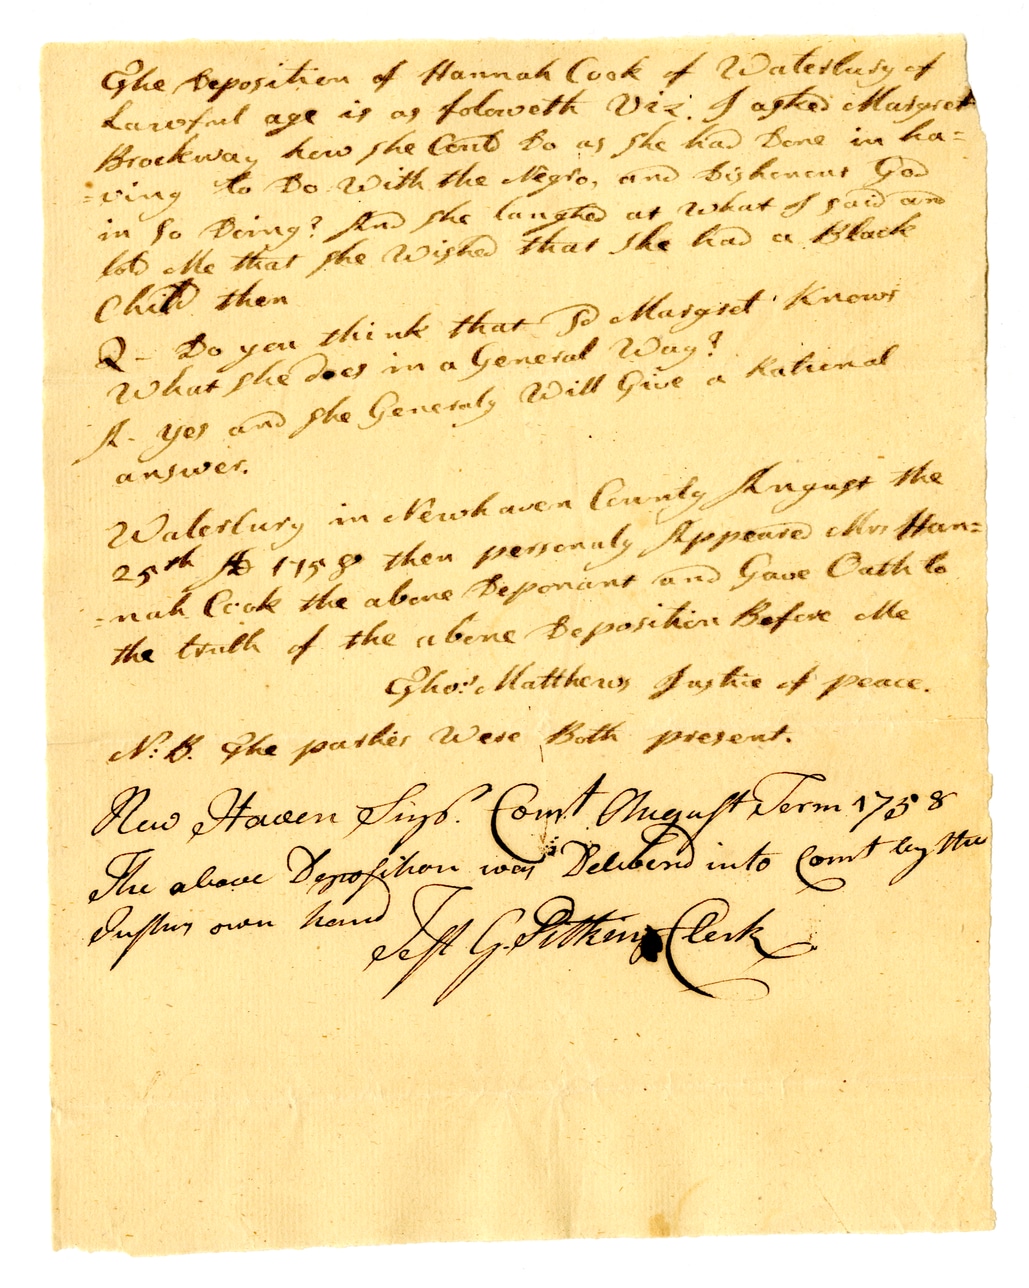 The Deposition of Hannah Cook of Waterbury of
Lawful age is as foloweth Viz. I asked Margret
Brockway how she Could Do as she had Done in ha-
-ving to Do With the Negro, and Dishonour God
in so Doing? And she laughed at What I said and
told Me that she Wished that she had a Black
Child then
Q - Do you think that sd Margret Knows
What she does in a General Way?
A - yes and she Generaly Will Give a Rational
answer.
Waterbury in Newhaven County August the
25th AD 1758 then personaly Appeared Mrs Han=
=nah Cook the above Deponant and Gave Oath to
the truth of the above Deposition Before Me
Thos: Matthews Justice of peace.
N: B. The parties Were Both present.
New Haven Supr. Court August Term 1758
The above Deposition was Deliverd into Court by the
Justices own hand
Test G. Pitkin Clerk